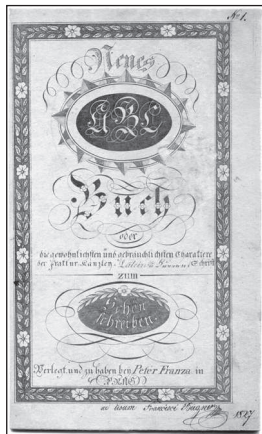 No 1.
Neues
ABC
Buch
oder
die gewöhnlichsten und gebräuchlichsten Charaktere
der Fraktur, Kanzley, Latein & Schrift
zum
Schön
schreiben.
Verlegt und zu haben bey Peter Franza in
PRAG
ad usum Francisci Wagner
1827